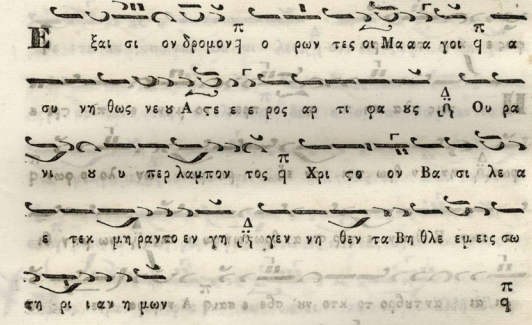 Ε ξαι σι ον δρομον η ο ρων τες οι Μα α α γοι η α
συ νη θως νε ου Α ςε ε ε ρος αρ τι φα ους Ου ρα
νι ου υ περ λαμπον τος η Χρι ςο ον Βα σι λε α
ε τεκ μη ραντο εν γη γεν νη θεν τα Βη θλε εμ εις σω
τη ρι ι αν η μων